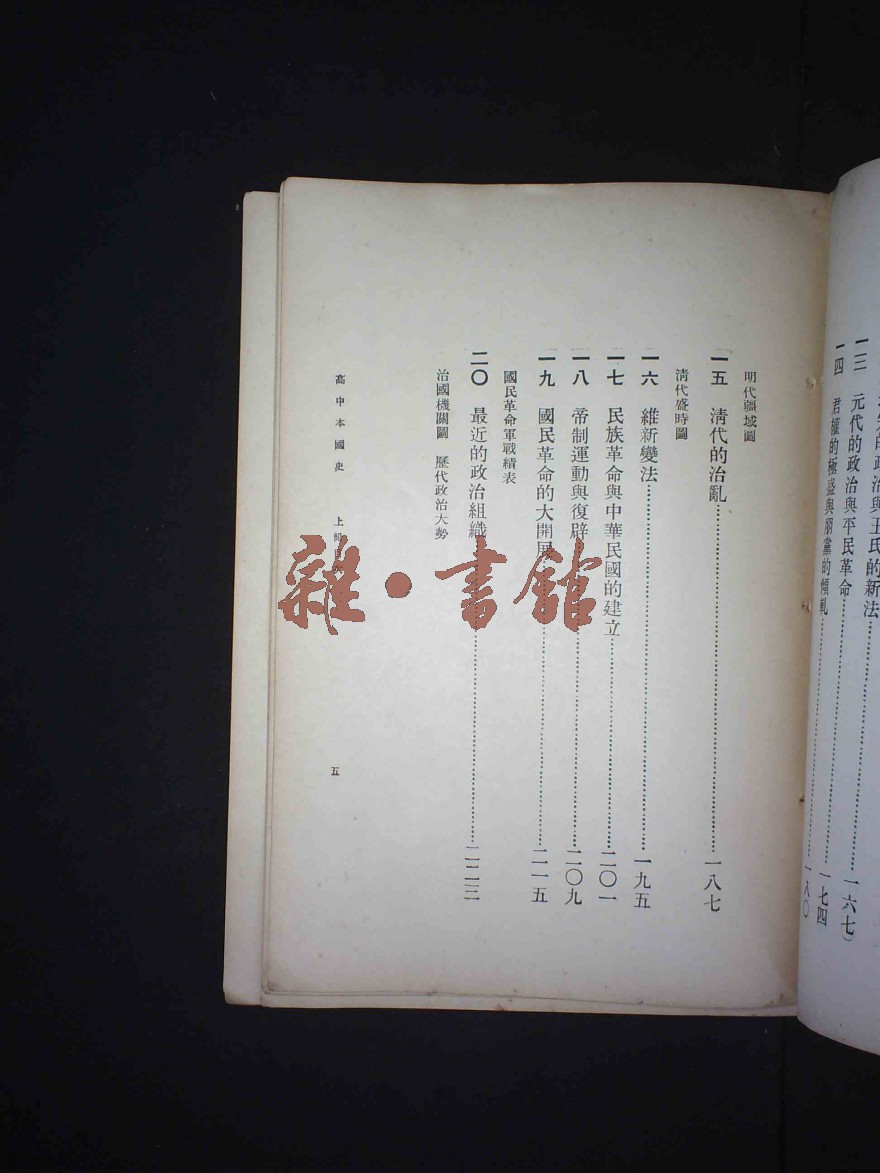 的政治與王氏的新法
一三 元代的政治與平民革命……一六七
一四 君權的極盛與朋黨的傾軋……一七四
一八〇
明代疆域圖
一五 清代的治亂……一八七
清代盛時圖
一六 維新變法……一九五
一七 民族革命與中華民國的建立……二〇一
一八 帝制運動與復辟……二〇九
一九 國民革命的大開展……二一五
國民革命軍戰績表
二〇 最近的政治組織……二二三
治國機關圖 歷代政治大勢
高中本國史 上冊
五
雜·書館